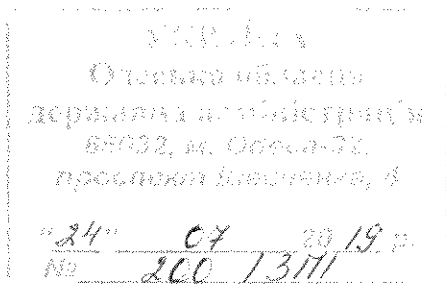 УКРАЇНА
Одеська обласна
державна адміністрація
65032, м. Одеса-32,
проспект Шевченка, 4
"24" 07 2019 р.
№ 200 /3П/